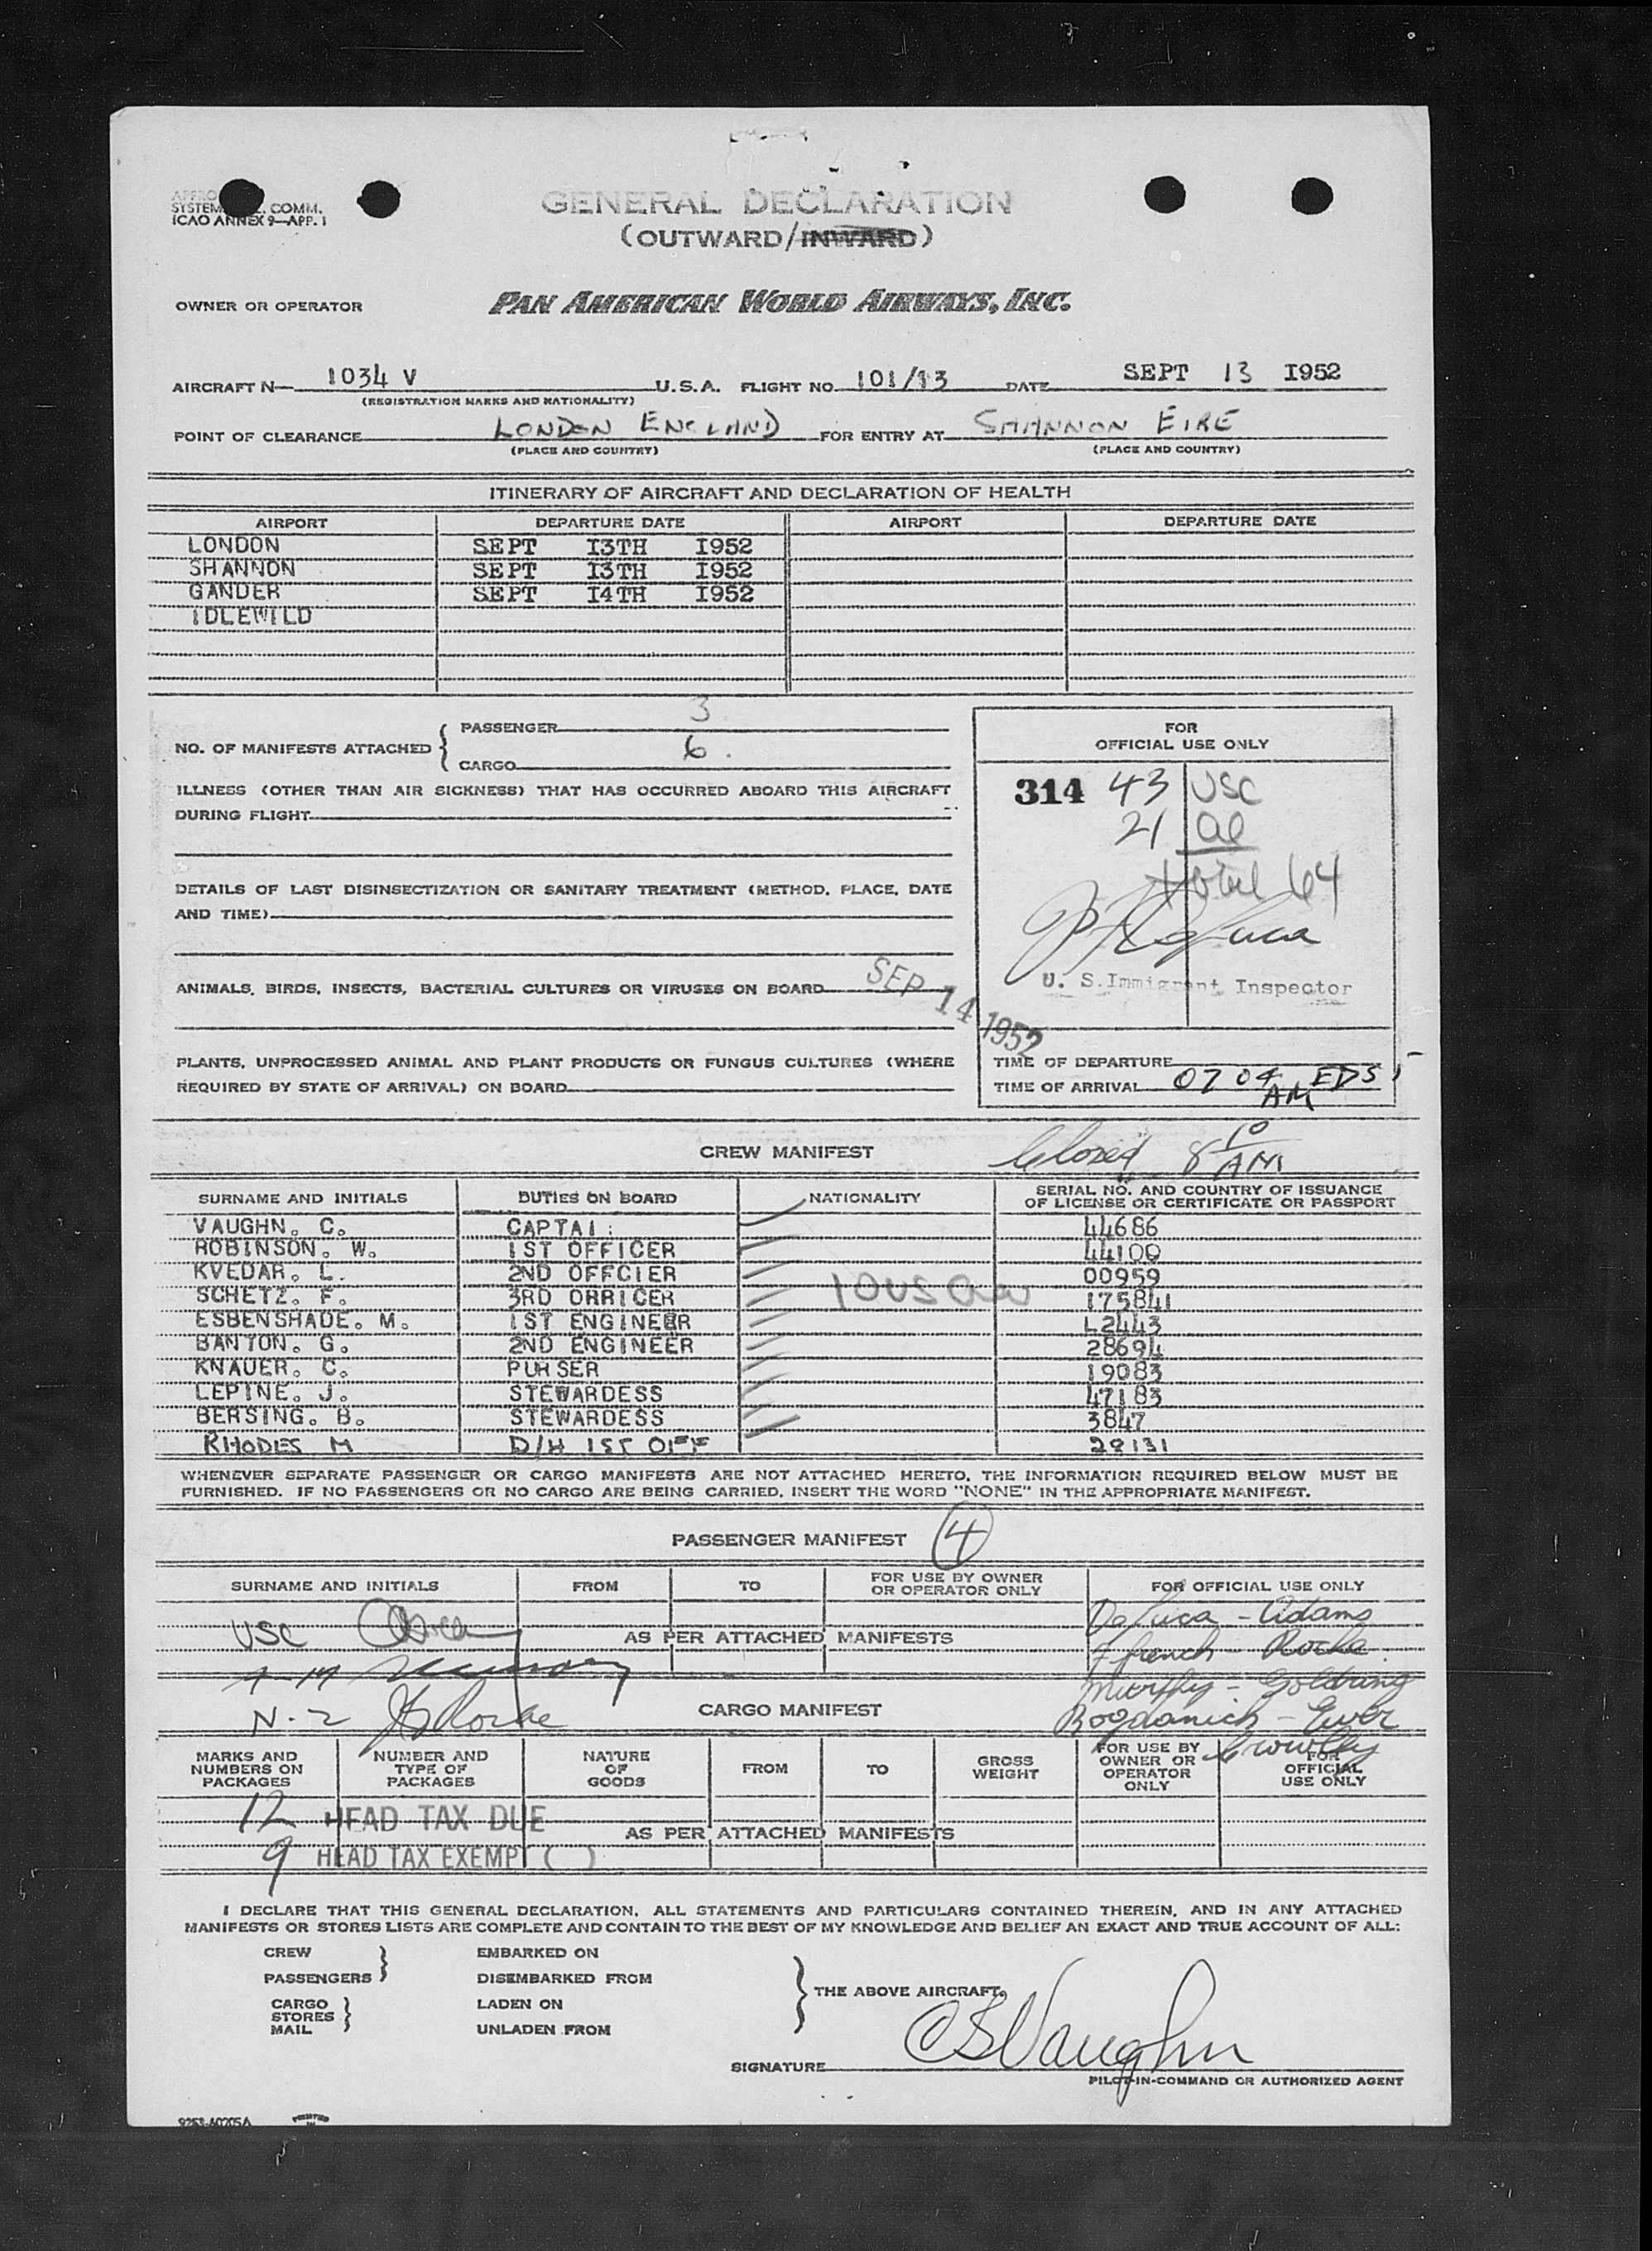 SYSTEM COMM.
ICAO ANNEX 9—APP. 1
GENERAL DECLARATION
(OUTWARD/INWARD)
OWNER OR OPERATOR PAN AMERICAN WORLD AIRWAYS, INC.
AIRCRAFT N— 1034 V U.S.A. FLIGHT NO. 101/13 DATE SEPT 13 1952
(REGISTRATION MARKS AND NATIONALITY)
POINT OF CLEARANCE LONDON ENGLAND FOR ENTRY AT SHANNON EIRE
(PLACE AND COUNTRY) (PLACE AND COUNTRY)
ITINERARY OF AIRCRAFT AND DECLARATION OF HEALTH
AIRPORT DEPARTURE DATE AIRPORT DEPARTURE DATE
LONDON SEPT I3TH I952
SHANNON SEPT I3TH I952
GANDER SEPT I4TH I952
IDLEWILD
NO. OF MANIFESTS ATTACHED { PASSENGER 3
CARGO 6.
FOR
OFFICIAL USE ONLY
314 43 USC
21 al
total 64
U. S. Immigrant Inspector
ILLNESS (OTHER THAN AIR SICKNESS) THAT HAS OCCURRED ABOARD THIS AIRCRAFT
DURING FLIGHT
DETAILS OF LAST DISINSECTIZATION OR SANITARY TREATMENT (METHOD, PLACE, DATE
AND TIME)
ANIMALS, BIRDS, INSECTS, BACTERIAL CULTURES OR VIRUSES ON BOARD
SEP 14 1952
PLANTS, UNPROCESSED ANIMAL AND PLANT PRODUCTS OR FUNGUS CULTURES (WHERE
REQUIRED BY STATE OF ARRIVAL) ON BOARD
TIME OF DEPARTURE
TIME OF ARRIVAL 07 04 AM EDST
CREW MANIFEST
Closed 8 10 AM
SURNAME AND INITIALS DUTIES ON BOARD NATIONALITY SERIAL NO. AND COUNTRY OF ISSUANCE
OF LICENSE OR CERTIFICATE OR PASSPORT
VAUGHN. C. CAPTAI 44686
ROBINSON. W. IST OFFICER 44100
KVEDAR. L. 2ND OFFCIER 00959
SCHETZ. F. 3RD ORRICER 175841
ESBENSHADE. M. IST ENGINEER L2443
BANTON. G. 2ND ENGINEER 28694
KNAUER. C. PURSER 19083
LEPINE. J. STEWARDESS 47183
BERSING. B. STEWARDESS 3847
RHODES M D/H IST OFF 28131
WHENEVER SEPARATE PASSENGER OR CARGO MANIFESTS ARE NOT ATTACHED HERETO, THE INFORMATION REQUIRED BELOW MUST BE
FURNISHED. IF NO PASSENGERS OR NO CARGO ARE BEING CARRIED, INSERT THE WORD "NONE" IN THE APPROPRIATE MANIFEST.
PASSENGER MANIFEST 4
SURNAME AND INITIALS FROM TO FOR USE BY OWNER
OR OPERATOR ONLY FOR OFFICIAL USE ONLY
DeLuca - Adams
USC AS PER ATTACHED MANIFESTS
Ffrench Roche
Murphy - Goldring
N-2 CARGO MANIFEST Bogdanich - Ewer
Crowlly
MARKS AND
NUMBERS ON
PACKAGES
NUMBER AND
TYPE OF
PACKAGES
NATURE
OF
GOODS
FROM TO
GROSS
WEIGHT
FOR USE BY
OWNER OR
OPERATOR
ONLY
FOR
OFFICIAL
USE ONLY
12 HEAD TAX DUE
AS PER ATTACHED MANIFESTS
9 HEAD TAX EXEMPT ( )
I DECLARE THAT THIS GENERAL DECLARATION, ALL STATEMENTS AND PARTICULARS CONTAINED THEREIN, AND IN ANY ATTACHED
MANIFESTS OR STORES LISTS ARE COMPLETE AND CONTAIN TO THE BEST OF MY KNOWLEDGE AND BELIEF AN EXACT AND TRUE ACCOUNT OF ALL:
CREW EMBARKED ON
PASSENGERS DISEMBARKED FROM
THE ABOVE AIRCRAFT.
CARGO LADEN ON
STORES
MAIL UNLADEN FROM
SIGNATURE CSVaughn
PILOT-IN-COMMAND OR AUTHORIZED AGENT